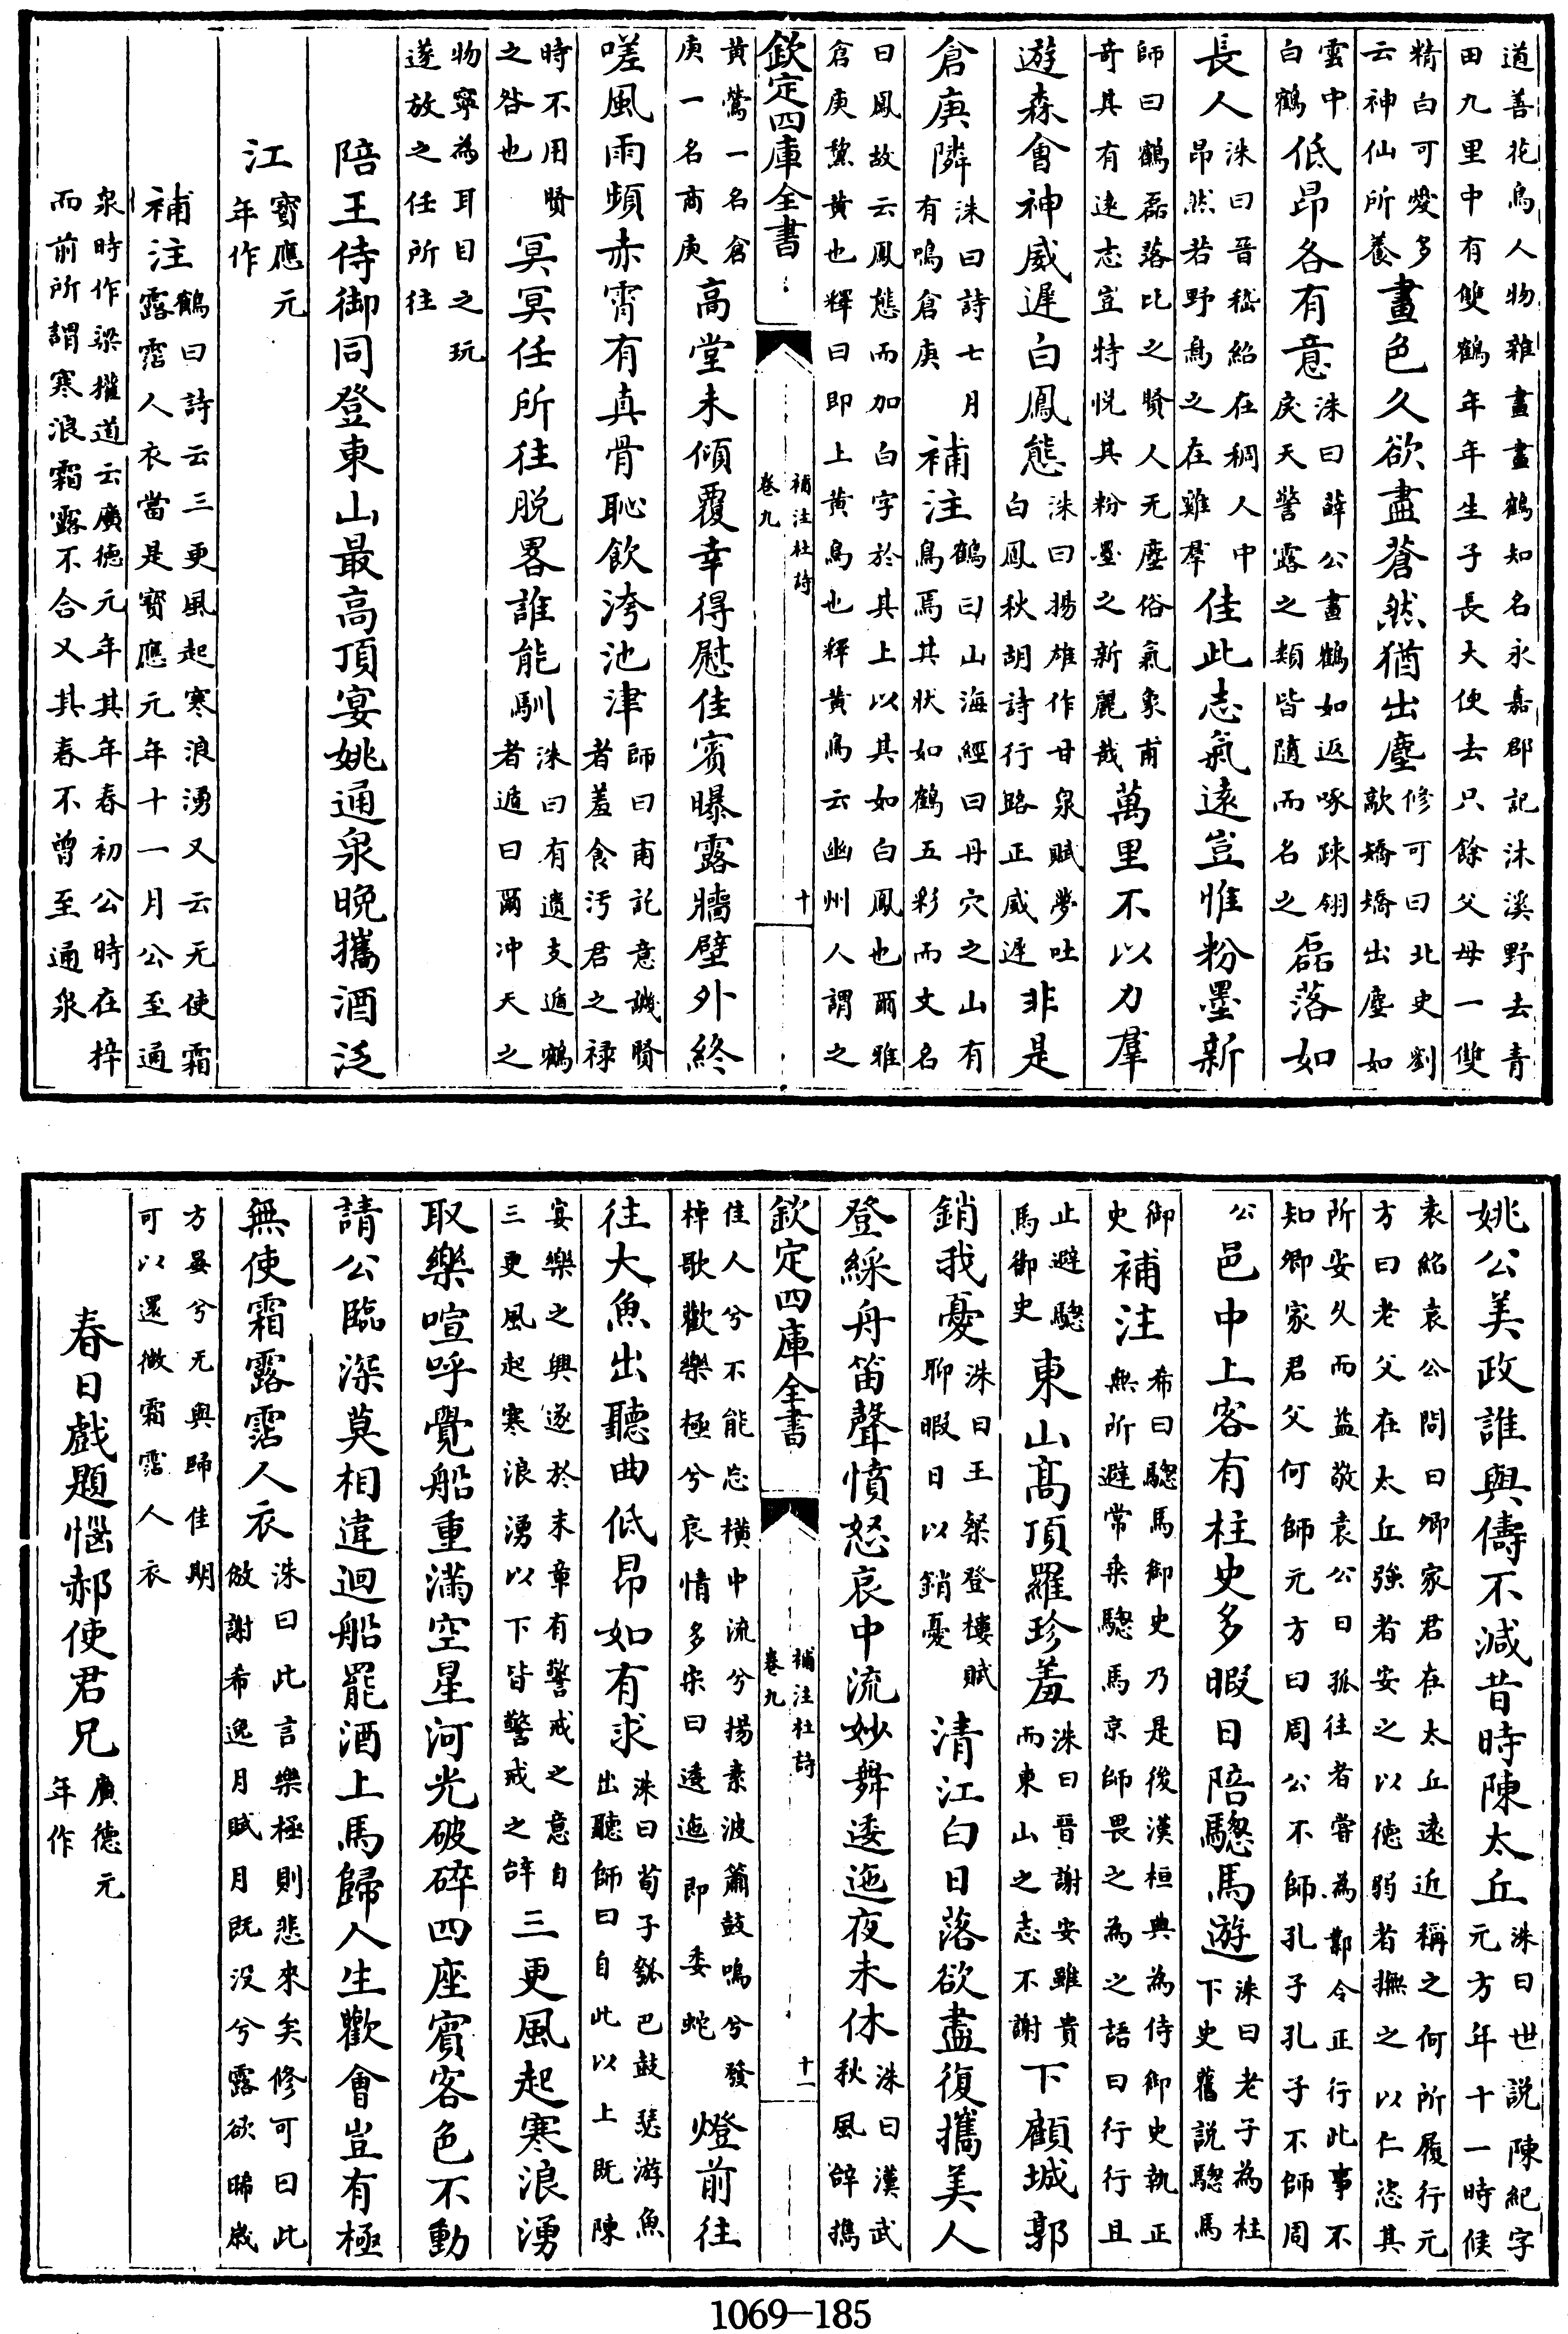 道善花鳥人物雜畫畫鶴知名永嘉郡記沐溪野去青
田九里中有雙鶴年年生子長大便去只餘父母一雙
精白可愛多
云神仙所養
畫色久欲盡蒼然猶出塵
修可曰北史劉
歊矯矯出塵如
雲中
白鶴
低昂各有意
洙曰薛公畫鶴如返啄疎翎
戾天警露之類皆隨而名之
磊落如
長人
洙曰晉嵇紹在稠人中
昂然若野鳥之在雞羣
佳此志氣遠豈惟粉墨新
師曰鶴磊落比之賢人无塵俗氣象甫
奇其有遠志豈特悅其粉墨之新麗哉
萬里不以力羣
遊森會神威遲白鳳態
洙曰揚雄作甘泉賦夢吐
白鳳秋胡詩行路正威遲
非是
倉庚隣
洙曰詩七月
有鳴倉庚
補注
鶴曰山海經曰丹穴之山有
鳥焉其狀如鶴五彩而文名
曰鳳故云鳳態而加白字於其上以其如白鳳也爾雅
倉庚黧黄也釋曰即上黄鳥也釋黄鳥云幽州人謂之
欽定四庫全書
補注杜詩
卷九
十
黄鶯一名倉
庚一名商庚
高堂未傾覆幸得慰佳賓曝露牆壁外終
嗟風雨頻赤霄有真骨恥飲洿池津
師曰甫託意譏賢
者羞食汚君之禄
時不用賢
之咎也
冥冥任所往脱畧誰能馴
洙曰有遺支遁鶴
者遁曰爾冲天之
物寧為耳目之玩
遂放之任所往
陪王侍御同登東山最高頂宴姚通泉晚攜酒泛
江
寶應元
年作
補注
鶴曰詩云三更風起寒浪湧又云无使霜
露霑人衣當是寶應元年十一月公至通
泉時作梁權道云廣德元年其年春初公時在梓
而前所謂寒浪霜露不合又其春不曾至通泉
姚公美政誰與儔不減昔時陳太丘
洙曰世説陳紀字
元方年十一時候
袁紹袁公問曰卿家君在太丘遠近稱之何所履行元
方曰老父在太丘強者安之以徳弱者撫之以仁恣其
所安久而益敬袁公曰孤往者嘗為鄴令正行此事不
知卿家君父何師元方曰周公不師孔子孔子不師周
公
邑中上客有柱史多暇日陪驄馬遊
洙曰老子為柱
下史舊説驄馬
御
史
補注
希曰驄馬御史乃是後漢桓典為侍御史執正
無所避常乘驄馬京師畏之為之語曰行行且
止避驄
馬御史
東山髙頂羅珍羞
洙曰晉謝安雖貴
而東山之志不謝
下顧城郭
銷我憂
洙曰王粲登樓賦
聊暇日以銷憂
清江白日落欲盡復攜美人
登綵舟笛聲憤怒哀中流妙舞逶迤夜未休
洙曰漢武
秋風辭攜
佳人兮不能忘橫中流兮揚素波簫鼓鳴兮發
棹歌歡樂極兮哀情多宋曰逶迤即委蛇
燈前往
往大魚出聽曲低昂如有求
洙曰荀子瓠巴鼓瑟游魚
出聽師曰自此以上既陳
宴樂之興遂於末章有警戒之意自
三更風起寒浪湧以下皆警戒之辭
三更風起寒浪湧
取樂喧呼覺船重滿空星河光破碎四座賓客色不動
請公臨深莫相違迴船罷酒上馬歸人生歡會豈有極
無使霜露霑人衣
洙曰此言樂極則悲來矣修可曰此
倣謝希逸月賦月既没兮露欲晞歲
方晏兮无與歸佳期
可以還微霜霑人衣
欽定四庫全書
補注杜詩
卷九
十一
春日戯題惱郝使君兄
廣德元
年作
1069-185